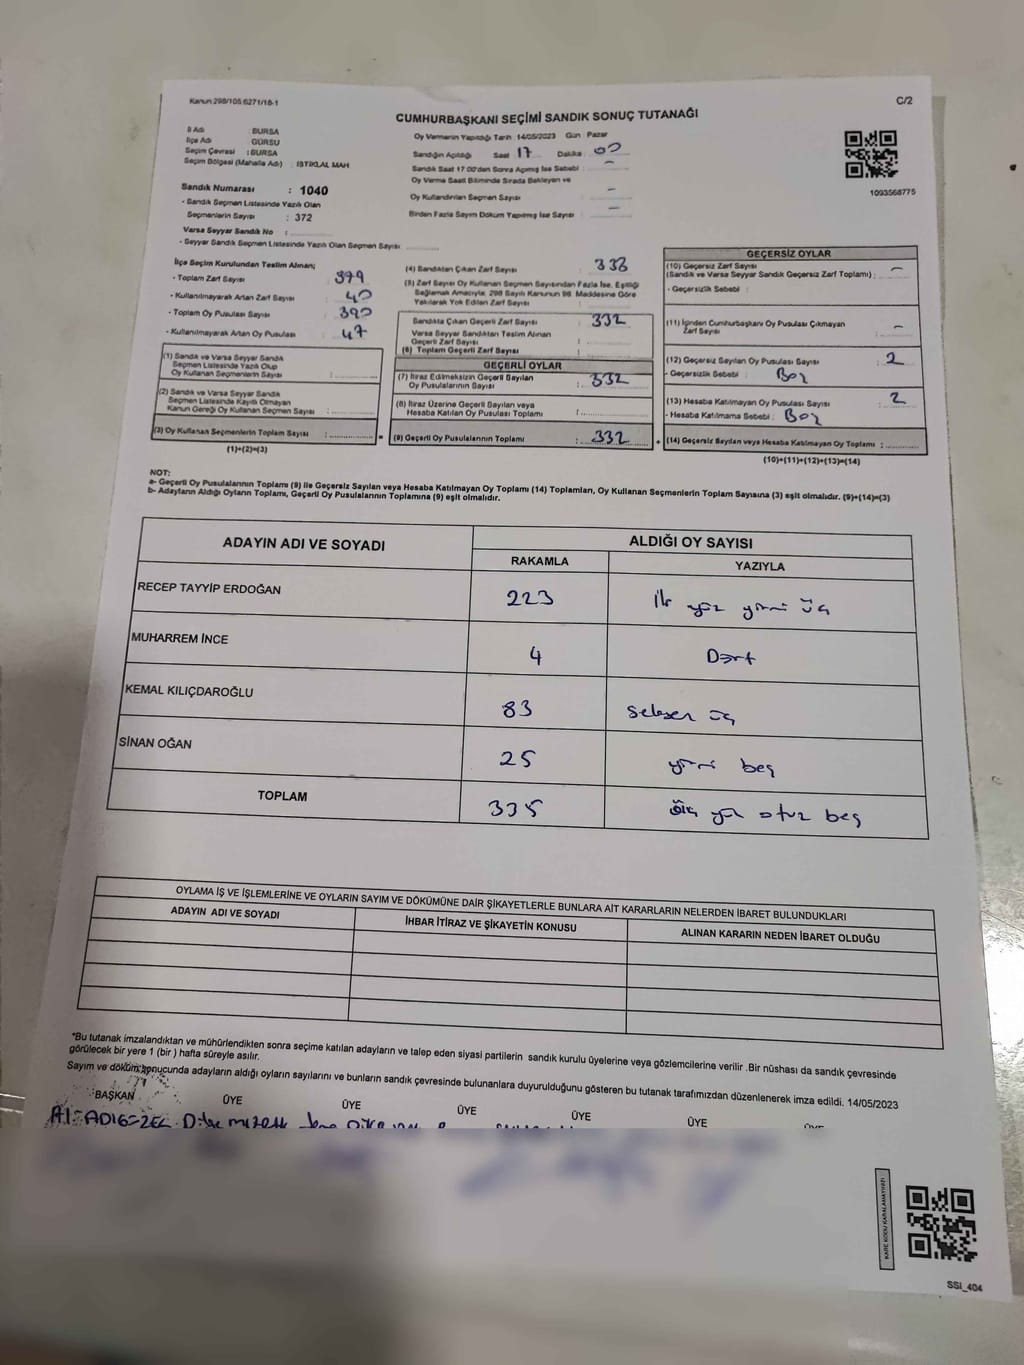 Kanun 298/105.6271/18-1
C/2
CUMHURBAŞKANI SEÇİMİ SANDIK SONUÇ TUTANAĞI
İl Adı : BURSA
İlçe Adı : GÜRSU
Seçim Çevresi : BURSA
Seçim Bölgesi (Mahalle Adı) : İSTİKLAL MAH.
Oy Vermenin Yapıldığı Tarih : 14/05/2023 Gün : Pazar
Sandığın Açıldığı Saat 17 Dakika : 00
Sandık Saat 17.00'den Sonra Açılmış İse Sebebi : –
Oy Verme Saati Bitiminde Sırada Bekleyen ve
Oy Kullandırılan Seçmen Sayısı : –
Birden Fazla Sayım Döküm Yapılmış İse Sayısı : –
1093568775
Sandık Numarası : 1040
- Sandık Seçmen Listesinde Yazılı Olan
Seçmenlerin Sayısı : 372
Varsa Seyyar Sandık No :
- Seyyar Sandık Seçmen Listesinde Yazılı Olan Seçmen Sayısı :
İlçe Seçim Kurulundan Teslim Alınan;
- Toplam Zarf Sayısı : 379
- Kullanılmayarak Artan Zarf Sayısı : 40
- Toplam Oy Pusulası Sayısı : 390
- Kullanılmayarak Artan Oy Pusulası : 47
(1) Sandık ve Varsa Seyyar Sandık
Seçmen Listesinde Yazılı Olup
Oy Kullanan Seçmenlerin Sayısı :
(2) Sandık ve Varsa Seyyar Sandık
Seçmen Listesinde Kayıtlı Olmayan
Kanun Gereği Oy Kullanan Seçmen Sayısı :
(3) Oy Kullanan Seçmenlerin Toplam Sayısı :
(1)+(2)=(3)
(4) Sandıktan Çıkan Zarf Sayısı : 338
(5) Zarf Sayısı Oy Kullanan Seçmen Sayısından Fazla İse, Eşitliği
Sağlamak Amacıyla, 298 Sayılı Kanunun 98. Maddesine Göre
Yakılarak Yok Edilen Zarf Sayısı :
Sandıkta Çıkan Geçerli Zarf Sayısı : 332
Varsa Seyyar Sandıktan Teslim Alınan
Geçerli Zarf Sayısı :
(6) Toplam Geçerli Zarf Sayısı :
GEÇERLİ OYLAR
(7) İtiraz Edilmeksizin Geçerli Sayılan
Oy Pusulalarının Sayısı : 332
(8) İtiraz Üzerine Geçerli Sayılan veya
Hesaba Katılan Oy Pusulası Toplamı :
(9) Geçerli Oy Pusulalarının Toplamı : 332
GEÇERSİZ OYLAR
(10) Geçersiz Zarf Sayısı
(Sandık ve Varsa Seyyar Sandık Geçersiz Zarf Toplamı) : –
- Geçersizlik Sebebi :
(11) İçinden Cumhurbaşkanı Oy Pusulası Çıkmayan
Zarf Sayısı : –
(12) Geçersiz Sayılan Oy Pusulası Sayısı : 2
- Geçersizlik Sebebi : Boş
(13) Hesaba Katılmayan Oy Pusulası Sayısı : 2
- Hesaba Katılmama Sebebi : Boş
(14) Geçersiz Sayılan veya Hesaba Katılmayan Oy Toplamı :
(10)+(11)+(12)+(13)=(14)
NOT:
a- Geçerli Oy Pusulalarının Toplamı (9) ile Geçersiz Sayılan veya Hesaba Katılmayan Oy Toplamı (14) Toplamları, Oy Kullanan Seçmenlerin Toplam Sayısına (3) eşit olmalıdır. (9)+(14)=(3)
b- Adayların Aldığı Oyların Toplamı, Geçerli Oy Pusulalarının Toplamına (9) eşit olmalıdır.
ADAYIN ADI VE SOYADI
ALDIĞI OY SAYISI
RAKAMLA
YAZIYLA
RECEP TAYYİP ERDOĞAN 223 iki yüz yirmi üç
MUHARREM İNCE 4 Dört
KEMAL KILIÇDAROĞLU 83 seksen üç
SİNAN OĞAN 25 yirmi beş
TOPLAM 335 üç yüz otuz beş
OYLAMA İŞ VE İŞLEMLERİNE VE OYLARIN SAYIM VE DÖKÜMÜNE DAİR ŞİKAYETLERLE BUNLARA AİT KARARLARIN NELERDEN İBARET BULUNDUKLARI
ADAYIN ADI VE SOYADI
İHBAR İTİRAZ VE ŞİKAYETİN KONUSU
ALINAN KARARIN NEDEN İBARET OLDUĞU
*Bu tutanak imzalandıktan ve mühürlendikten sonra seçime katılan adayların ve talep eden siyasi partilerin sandık kurulu üyelerine veya gözlemcilerine verilir .Bir nüshası da sandık çevresinde
görülecek bir yere 1 (bir ) hafta süreyle asılır.
Sayım ve döküm sonucunda adayların aldığı oyların sayılarını ve bunların sandık çevresinde bulunanlara duyurulduğunu gösteren bu tutanak tarafımızdan düzenlenerek imza edildi. 14/05/2023
BAŞKAN ÜYE ÜYE ÜYE ÜYE ÜYE
KARE KODU KARALAMAYINIZ!
SSI_404